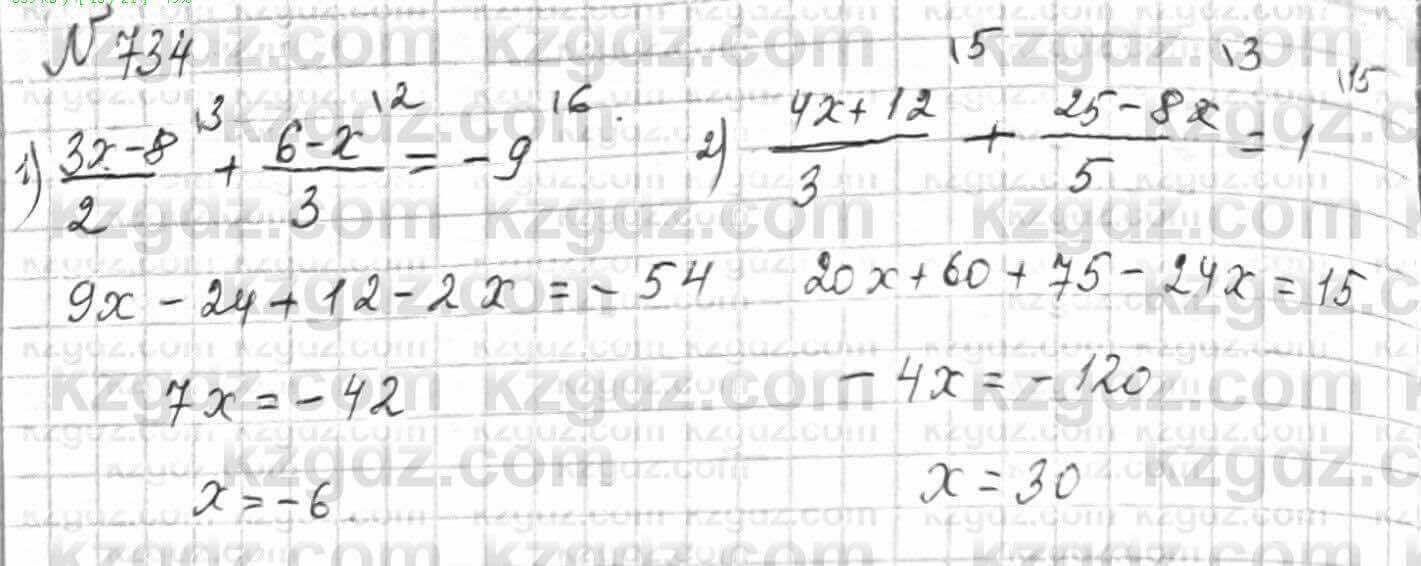 № 734
1) (3x-8)/2 \3 + (6-x)/3 \2 = -9 \6.
9x - 24 + 12 - 2x = -54
7x = -42
x = -6.
2) (4x+12)/3 \5 + (25-8x)/5 \3 = 1 \15
20x + 60 + 75 - 24x = 15
-4x = -120
x = 30
kzgdz.com